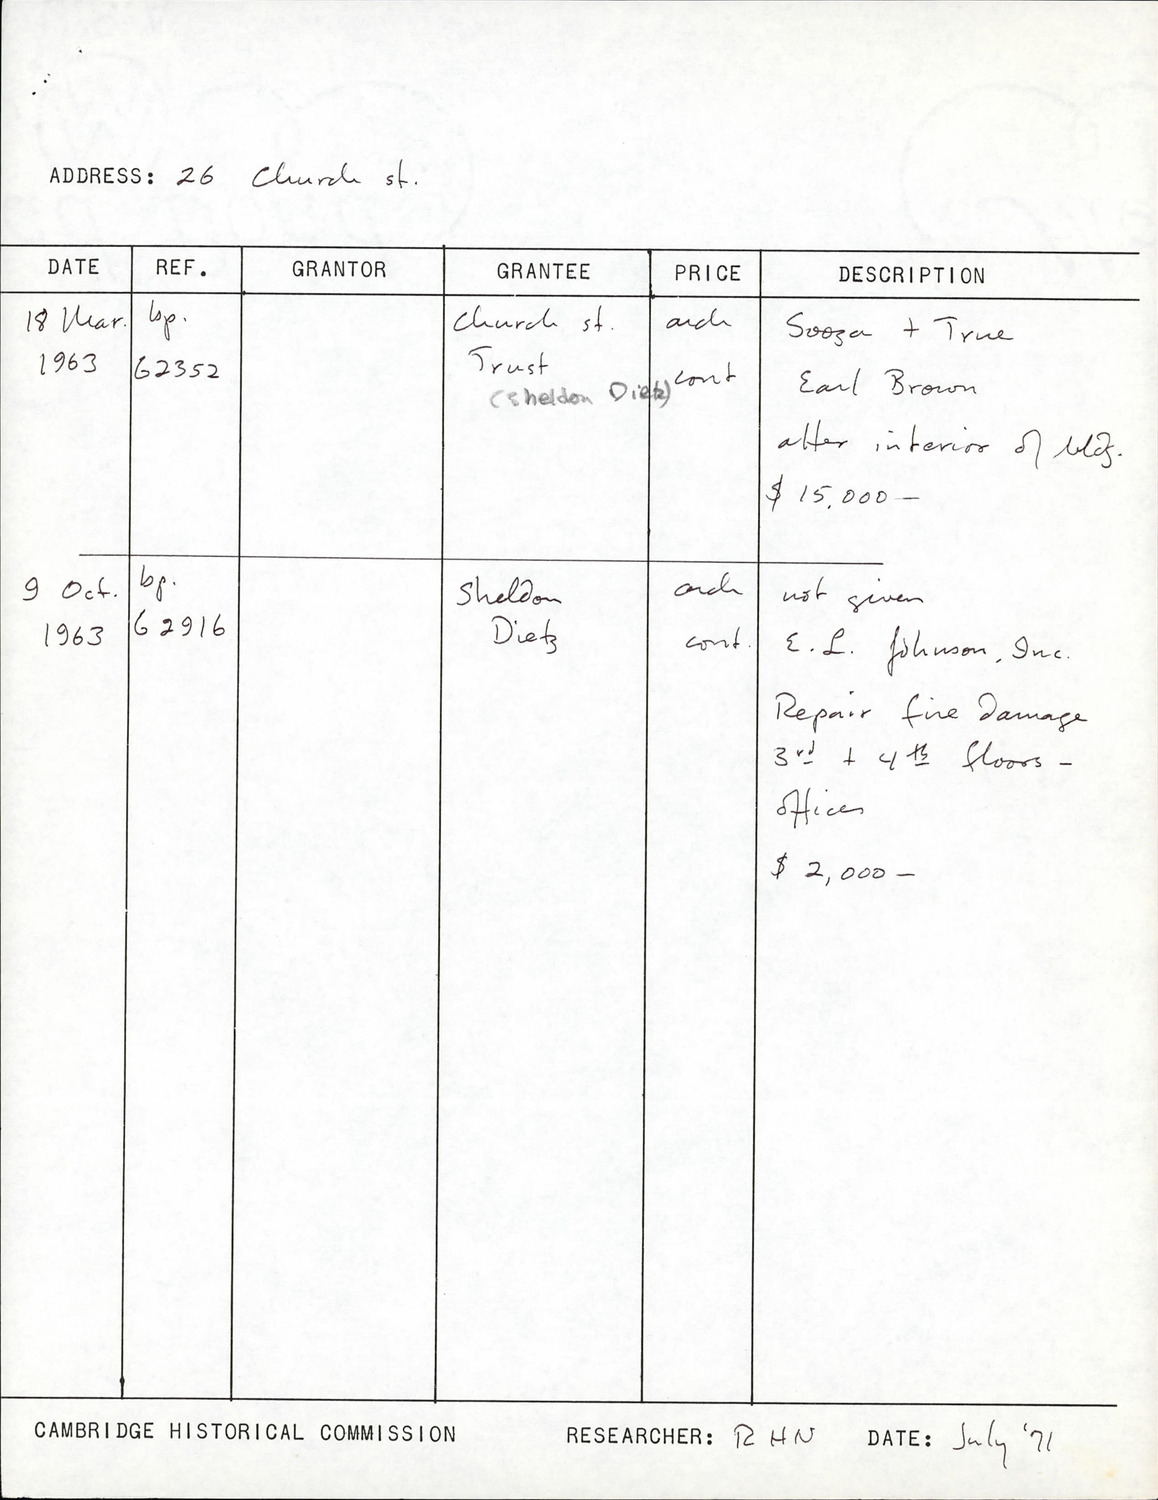 ADDRESS: 26 Church st.
DATE REF. GRANTOR GRANTEE PRICE DESCRIPTION
18 Mar. bp. Church st. arch Sooza + True
1963 62352 Trust cont Earl Brown
(Sheldon Dietz)
alter interior of bldg.
$ 15,000 —
9 Oct. bp. Sheldon arch not given
1963 62916 Dietz cont. E. L. Johnson, Inc.
Repair fire damage
3rd + 4th floors –
offices
$ 2,000 —
CAMBRIDGE HISTORICAL COMMISSION RESEARCHER: RHN DATE: July '71